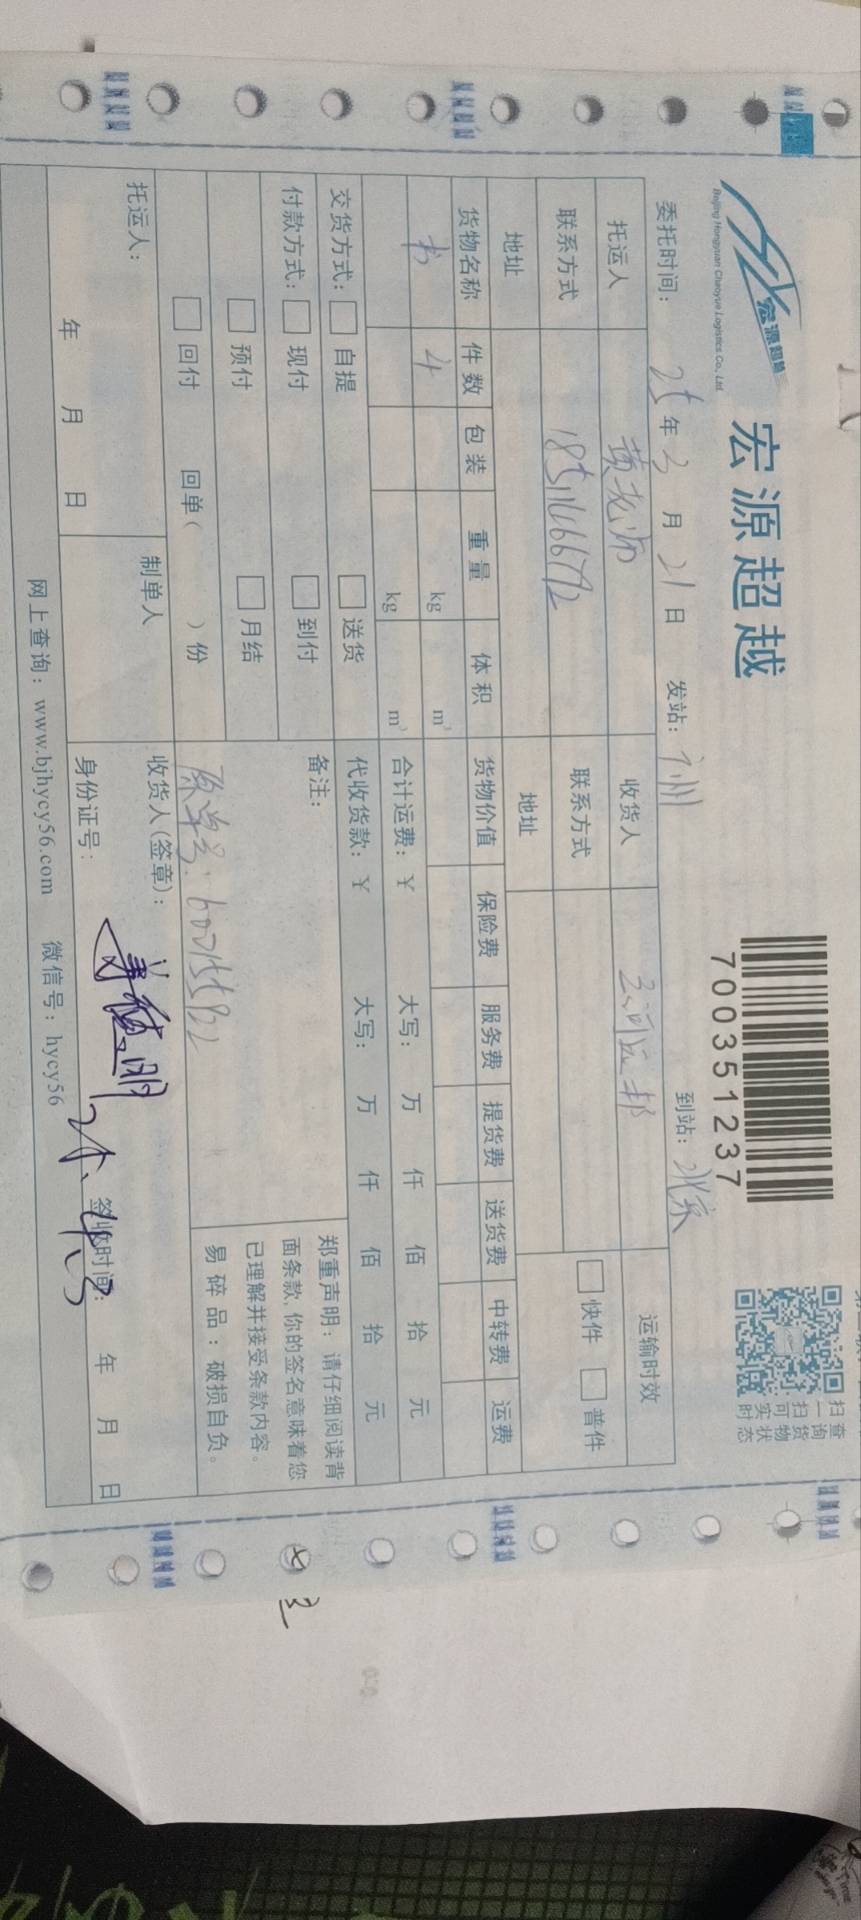 宏源超越
Beijing Hongyuan Chaoyue Logistics Co., Ltd.
宏源超越
700351237
扫一扫可实时
查询货物状态
委托时间: 25年3月21日 发站: 广州 到站: 北京
托运人 黄老师 收货人 运输时效
联系方式 联系方式 快件 普件
地址 地址
货物名称 件数 包装 重量 体积 货物价值 保险费 服务费 提货费 送货费 中转费 运费
书 4 kg m³
kg m³ 合计运费: ¥ 大写: 万 仟 佰 拾 元
交货方式: 自提 送货 代收货款: ¥ 大写: 万 仟 佰 拾 元
付款方式: 现付 到付 备注:
预付 月结
回付 回单( )份
原单号: 60015582
郑重声明: 请仔细阅读背
面条款,你的签名意味着您
已理解并接受条款内容。
易碎品: 破损自负。
托运人: 制单人 收货人(签章):
年 月 日 身份证号: 签收时间: 年 月 日
网上查询: www.bjhycy56.com 微信号: hycy56